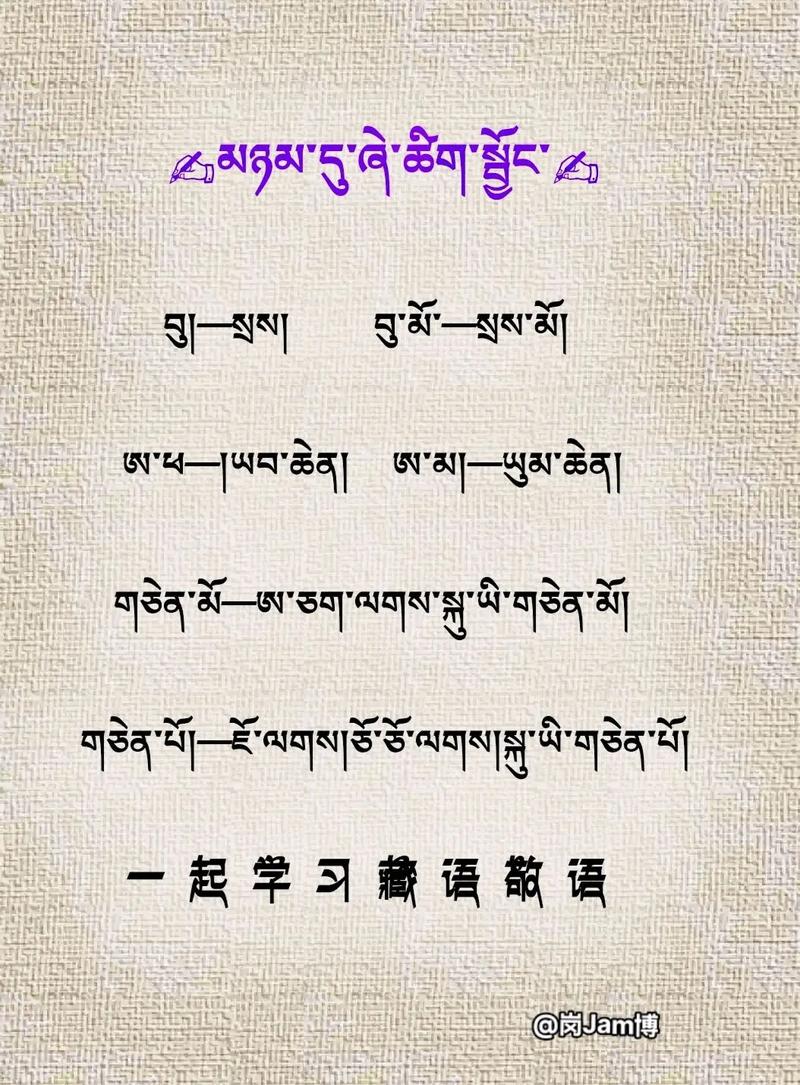 ✍མཉམ་དུ་ཞེ་ཚིག་སྦྱོང་✍
བུ།—སྲས། བུ་མོ་—སྲས་མོ།
ཨ་ཕ—།ཡབ་ཆེན། ཨ་མ།—ཡུམ་ཆེན།
གཅེན་མོ—ཨ་ཅག་ལགས་སྐུ་ཡི་གཅེན་མོ།
གཅེན་པོ།—ཇོ་ལགས།ཅོ་ཅོ་ལགས།སྐུ་ཡི་གཅེན་པོ།
一起学习藏语敬语
@岗Jam博